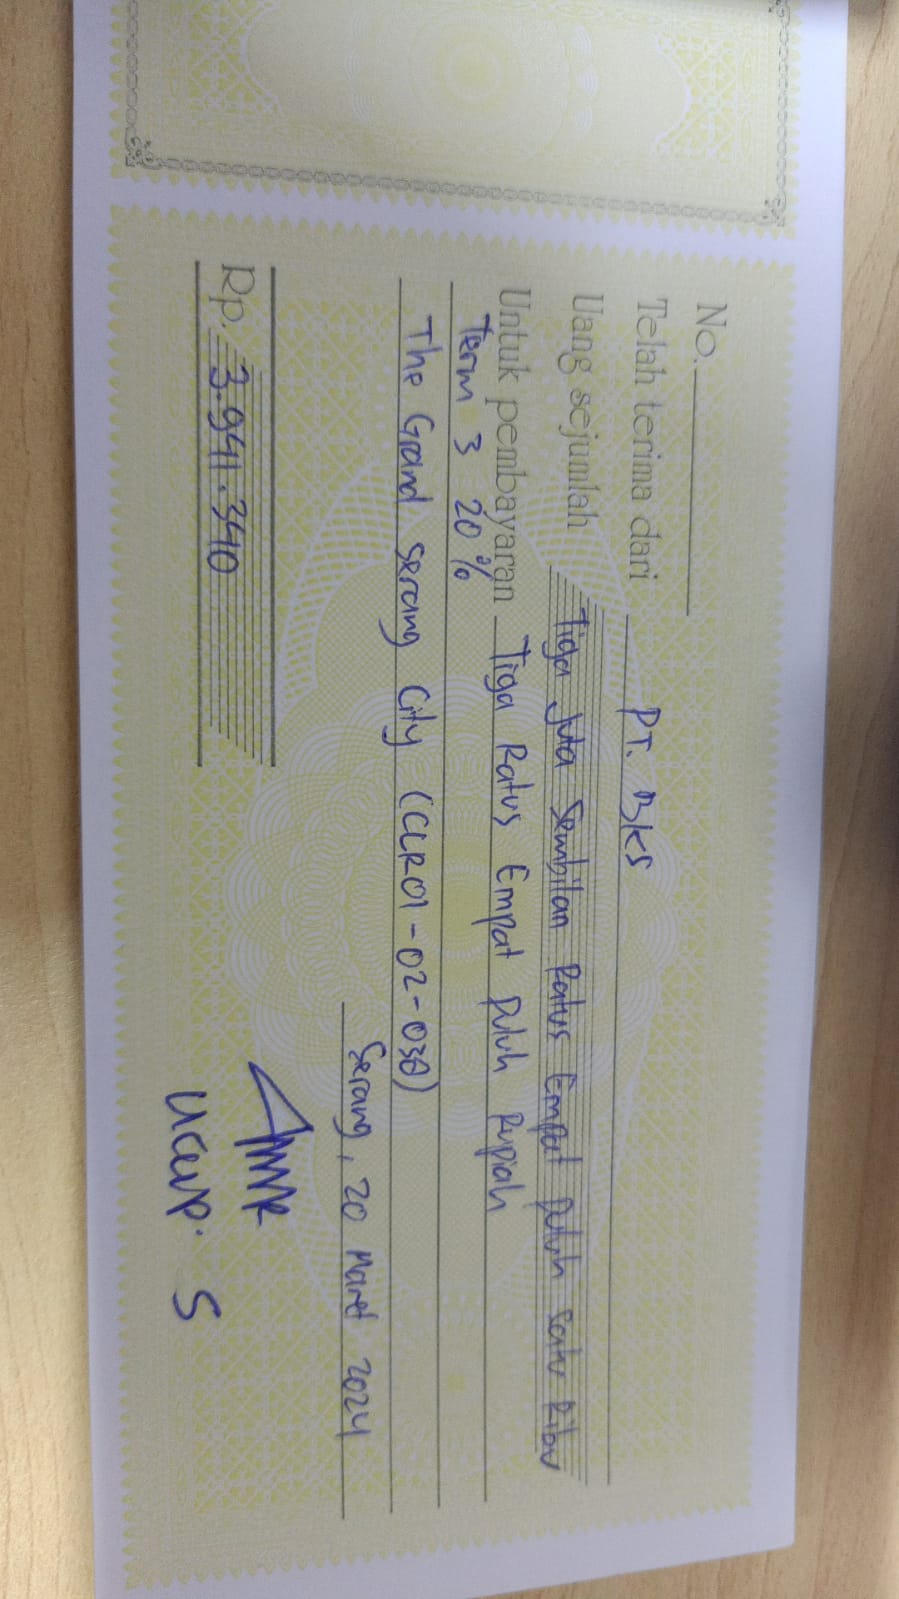 No.
Telah terima dari PT. BKS
Uang sejumlah Tiga Juta Sembilan Ratus Empat puluh satu Ribu
Untuk pembayaran Tiga Ratus Empat puluh Rupiah
Term 3 20%
The Grand Serang City (CLR01-02-038)
Serang, 20 Maret 2024
Rp. 3.941.340
Ucup. S